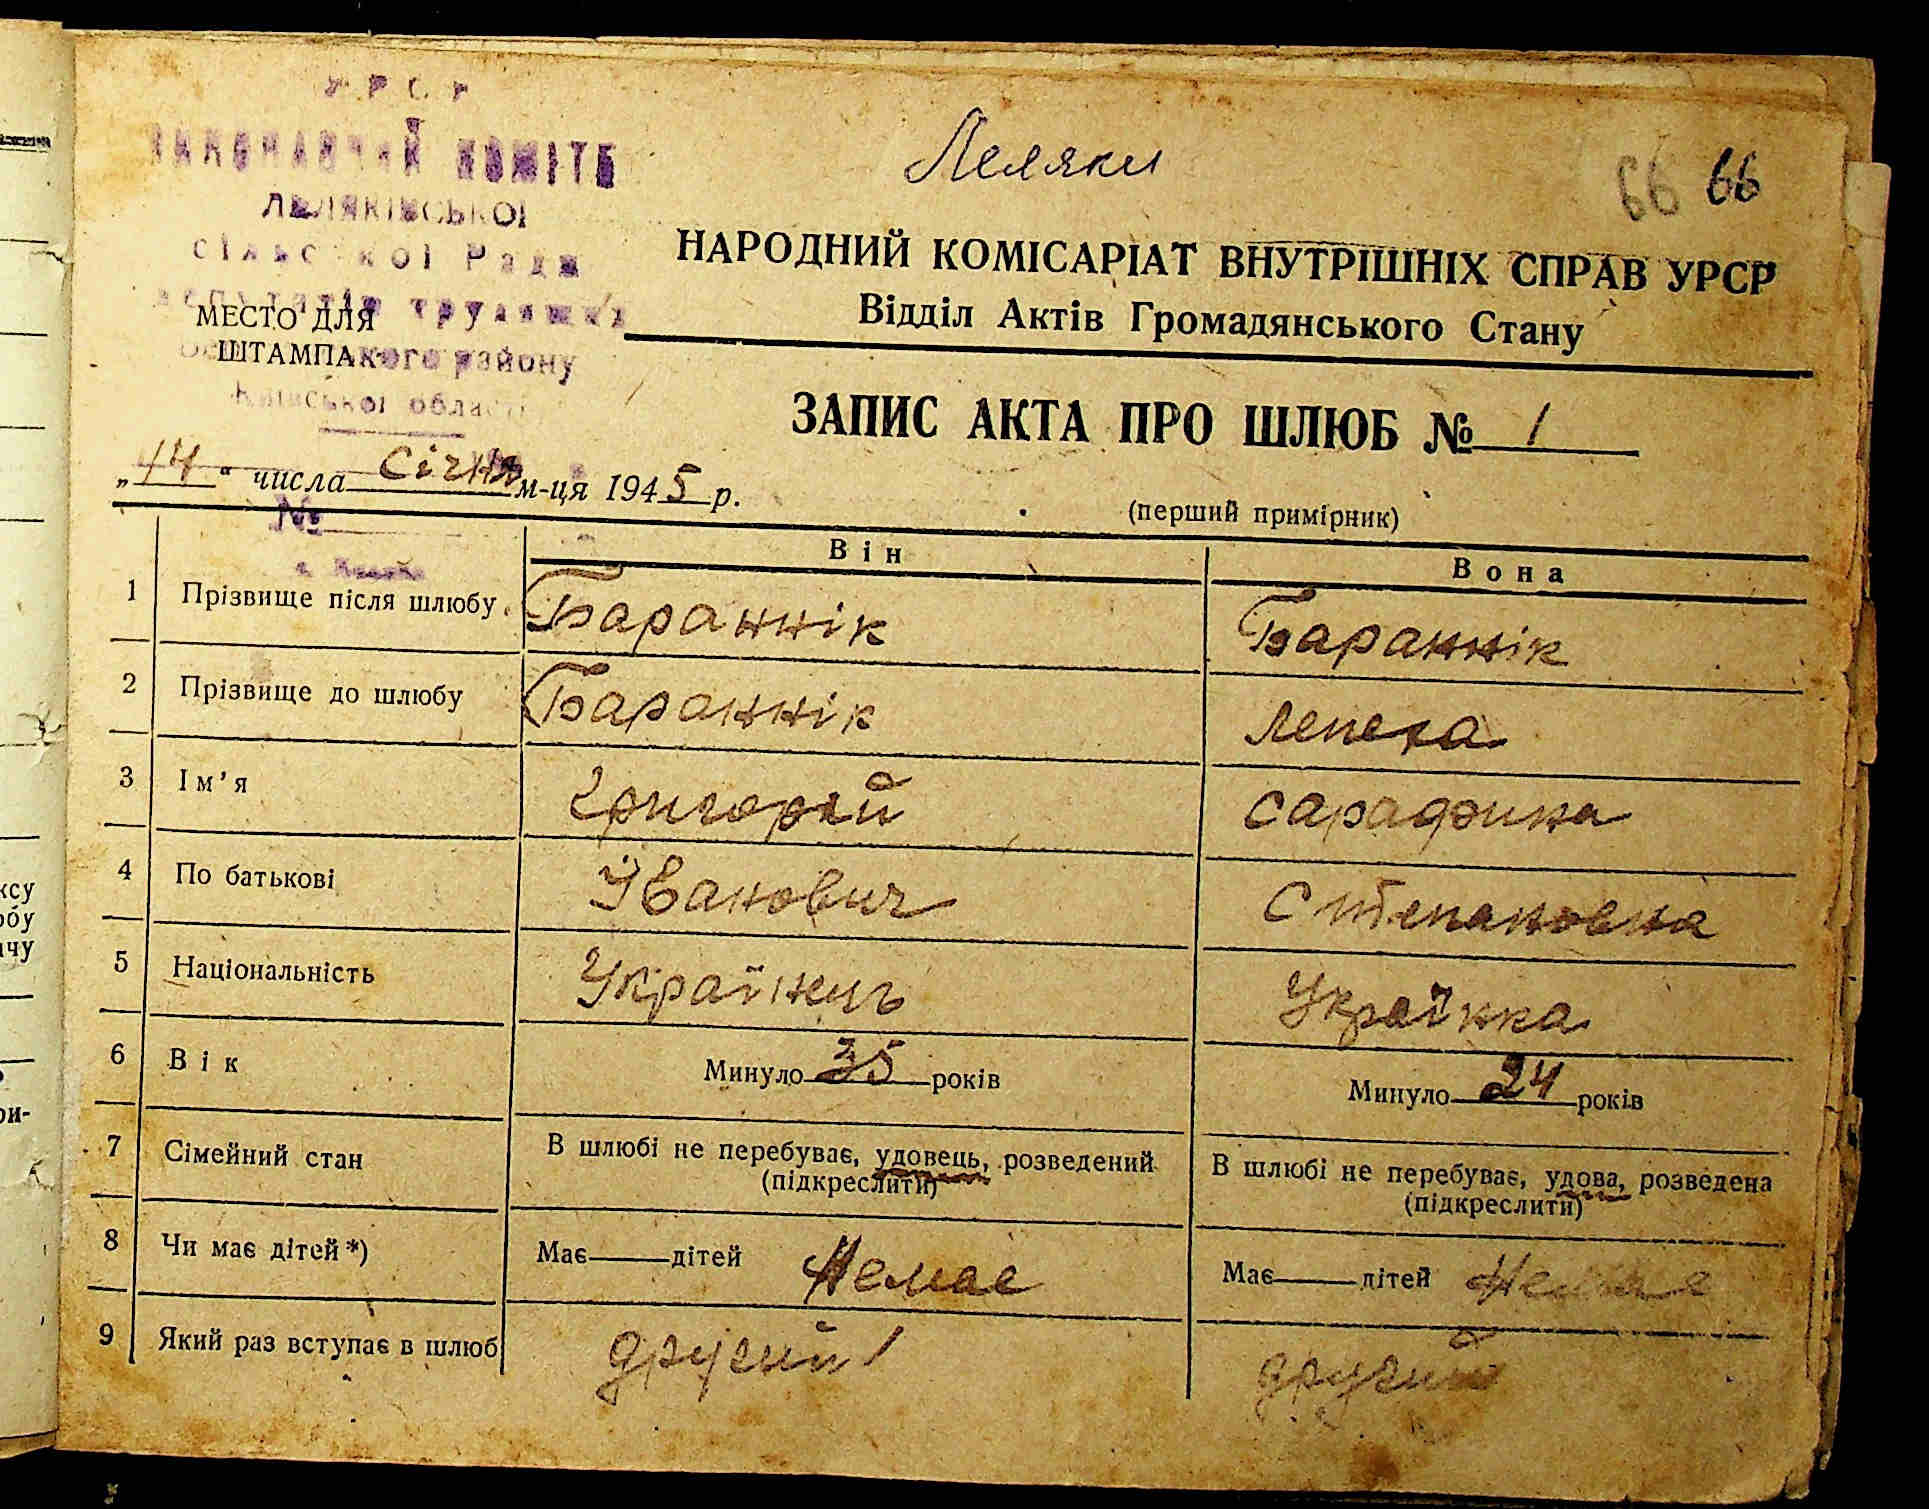 УРСР
ВИКОНАВЧИЙ КОМІТЕ
ЛЕЛЯКІВСЬКОЇ
сільської Ради
депутатів трудящих
МЕСТО ДЛЯ
ШТАМПА
кого району
Київської області
Леляки
66 66
НАРОДНИЙ КОМІСАРІАТ ВНУТРІШНІХ СПРАВ УРСР
Відділ Актів Громадянського Стану
ЗАПИС АКТА ПРО ШЛЮБ № 1
„14“ числа Січня м-ця 1945 р.
(перший примірник)
№
Він Вона
1 Прізвище після шлюбу Бараннік Бараннік
2 Прізвище до шлюбу Бараннік Лепеха
3 Ім’я Григорій Сарафина
4 По батькові Іванович Степановна
5 Національність Українець Українка
6 Вік Минуло 35 років Минуло 24 років
7 Сімейний стан В шлюбі не перебуває, удовець, розведений (підкреслити) В шлюбі не перебуває, удова, розведена (підкреслити)
8 Чи має дітей*) Має дітей Немає Має дітей Немає
9 Який раз вступає в шлюб другий другий
ксу
юбу
ачу
ри-